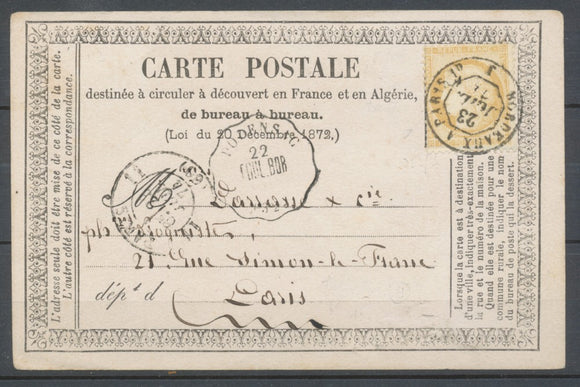 CARTE POSTALE
destinée à circuler à découvert en France et en Algérie,
de bureau à bureau.
(Loi du 20 Décembre 1872.)
L'adresse seule doit être mise de ce côté de la carte.
L'autre côté est réservé à la correspondance.
22
TOUL.BOR
BORDEAUX A PARIS
23
& cie
21 Rue Simon-le-Franc
dépt d
Paris
Lorsque la carte est à destination
d'une ville, indiquer très-exactement
la rue et le numéro de la maison.
Quand elle est destinée pour une
commune rurale, indiquer le nom
du bureau de poste qui la dessert.